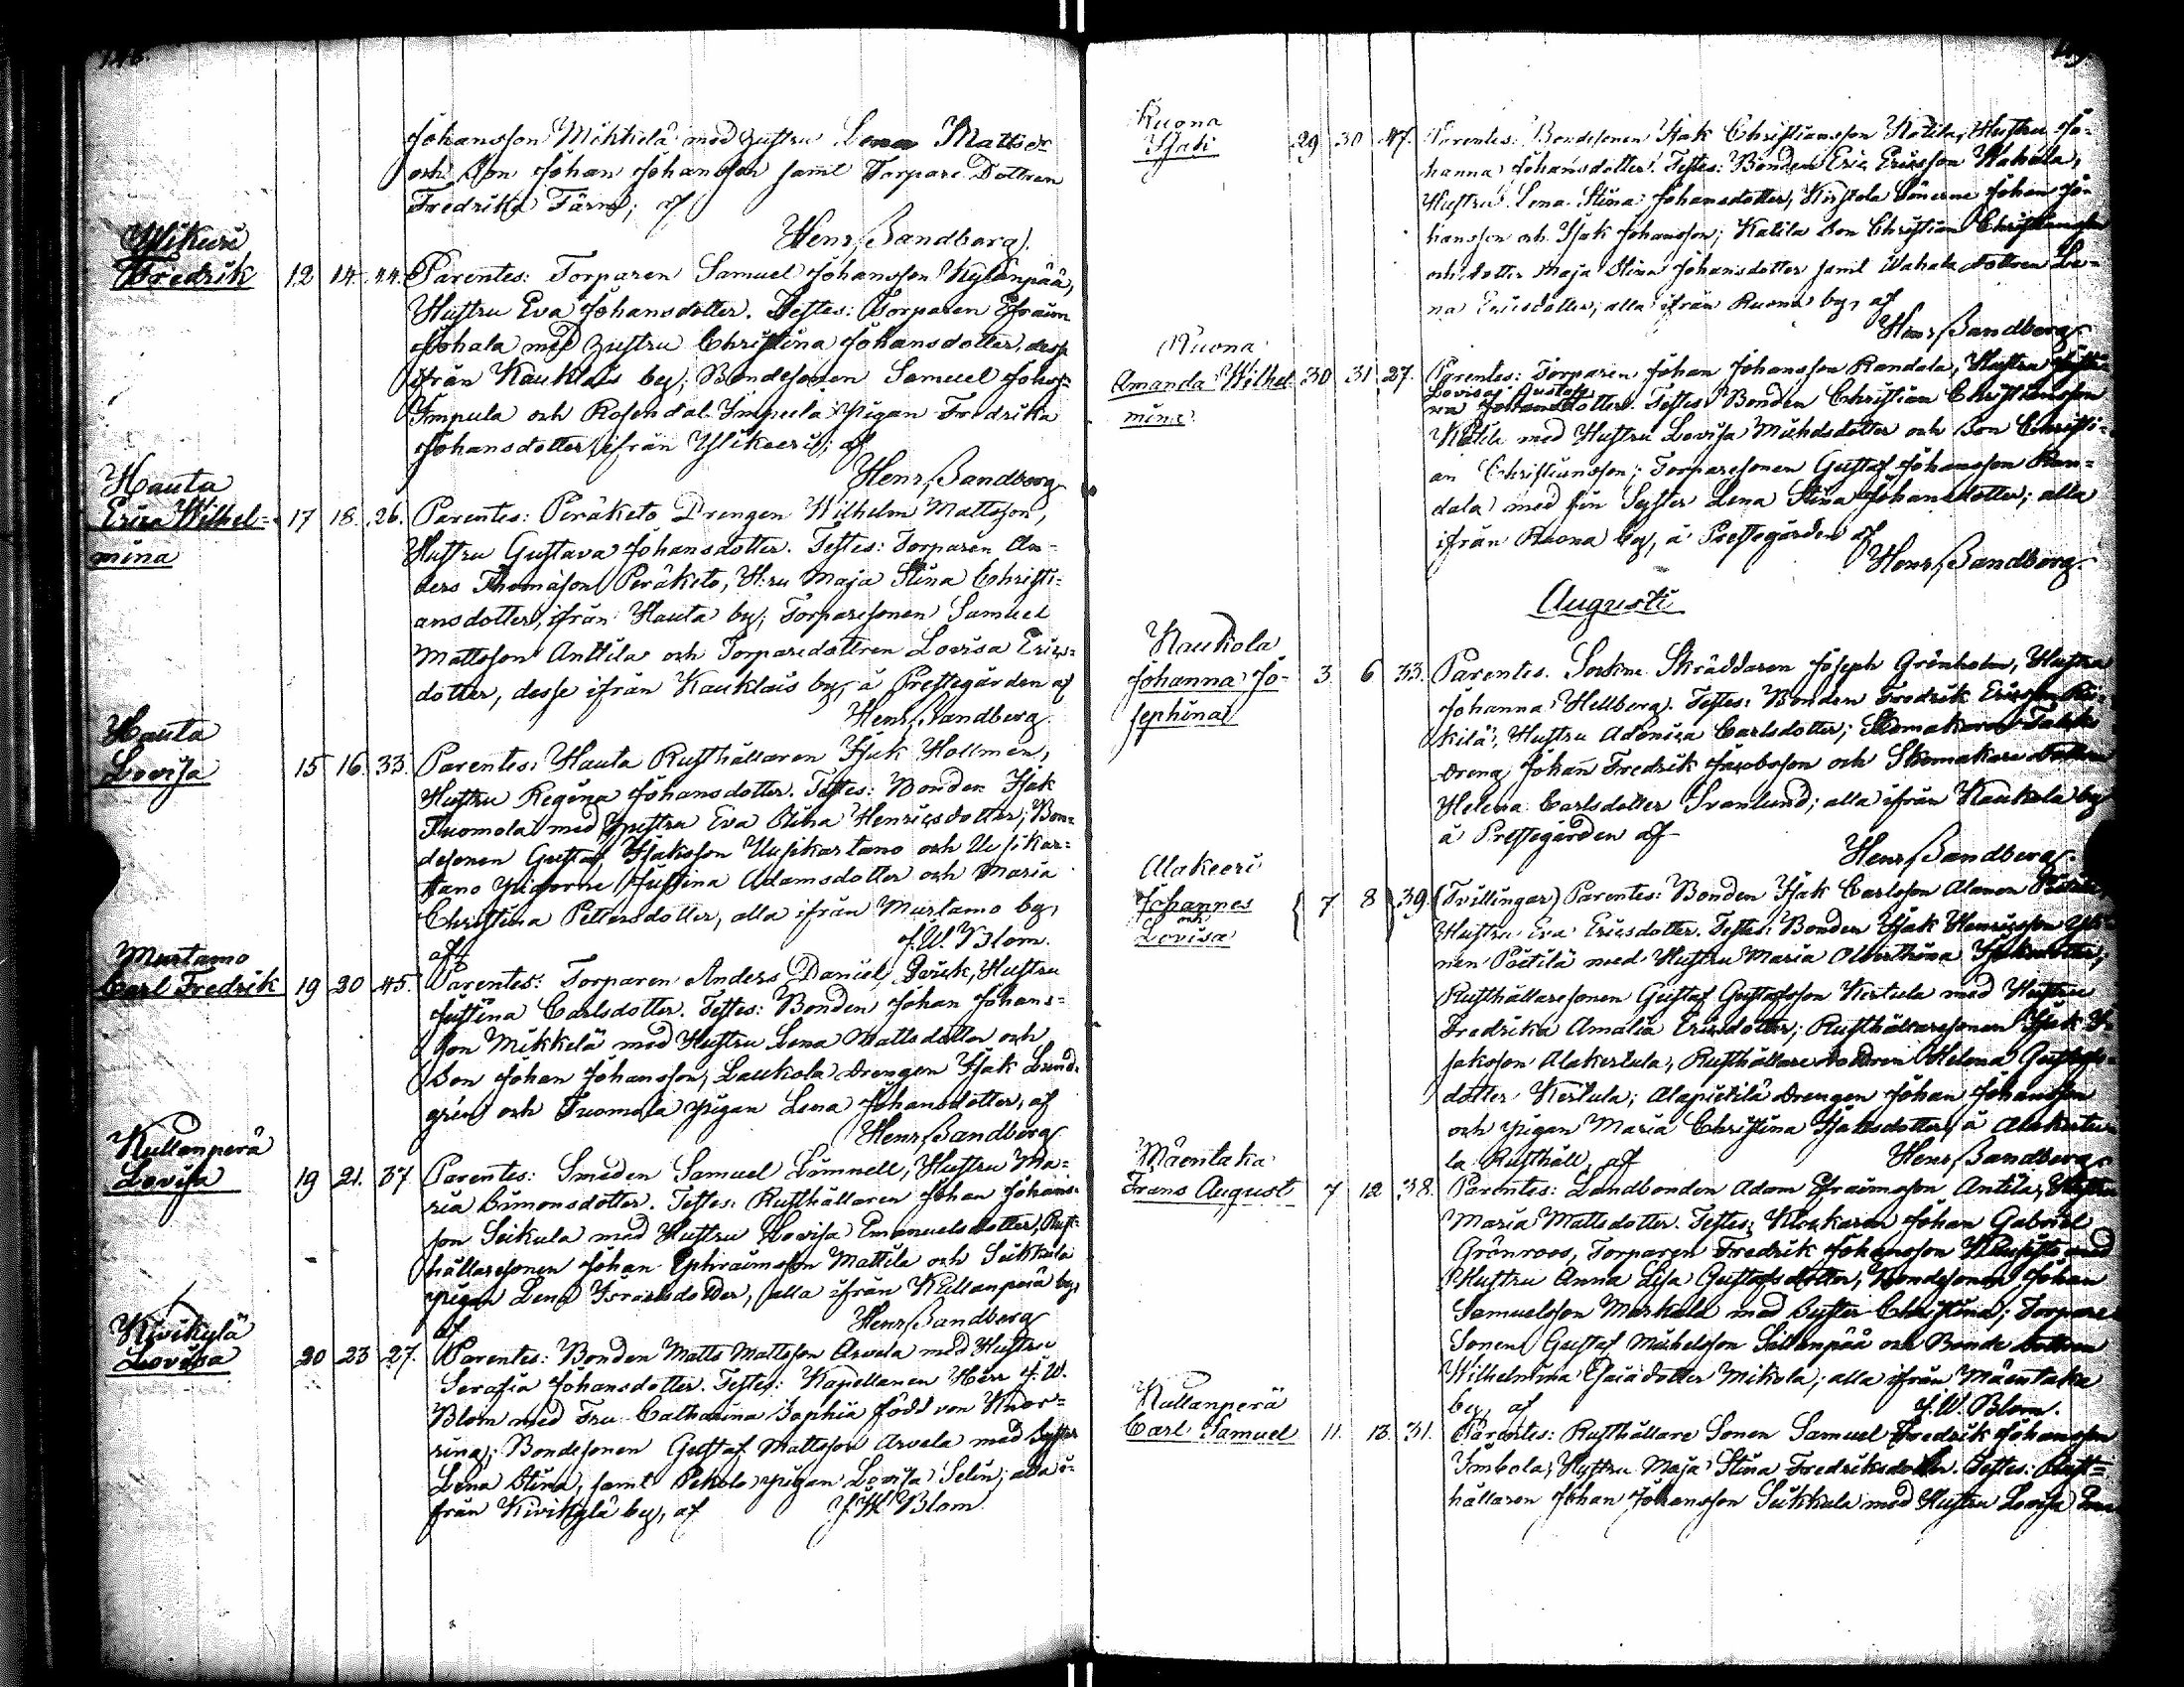 146.
Johansson Mikkelä med hustru Lena Mattsdr
och Son Johan Johansson samt Torpare Dottren
Fredrika Färm; af
Henr. Sandberg.
Ylikuri
Fredrik 12 14. 24. Parentes: Torparen Samuel Johansson Kylänpää,
Hustru Eva Johansdotter. Testes: Torparen Efraim
Johala med hustru Christina Johansdotter, desse
ifrån Kauklais by; Bondesonen Samuel Johans:
Impula och Rosendal Impula pigan Fredrika
Johansdotter, ifrån Ylikeeri; af
Henr. Sandberg
Hauta
Erica Wilhel= 17 18. 26. Parentes: Peräketo Drengen Wilhelm Mattsson,
mina
Hustru Gustava Johansdotter. Testes: Torparen An-
ders Thomasson Peräketo, H:ru Maja Stina Christi-
ansdotter, ifrån Hauta by; Torparesonen Samuel
Mattsson Anttila och Torparedottren Lovisa Erics=
dotter, desse ifrån Kauklais by, å Prestegården af
Henr. Sandberg.
Hauta
Lovisa 15 16. 33. Parentes: Hauta Rusthållaren Isak Hollmen,
Hustru Regina Johansdotter. Testes: Bonden Isak
Tuomola med hustru Eva Stina Henricsdotter; Bon=
desonen Gustaf Isaksson Uusikartano och Uusikar=
tano pigorne Justina Adamsdotter och Maria
Christina Pettersdotter, alla ifrån Murtamo by,
af J. W. Blom.
Murtamo
Carl Fredrik 19 20 45. Parentes: Torparen Anders Daniel Hustru
Justina Carlsdotter. Testes: Bonden Johan Johans=
son Mikkelä med Hustru Lena Mattsdotter och
Son Johan Johansson; Laukola Drengen Isak Lind=
gren och Tuomola pigan Lena Johansdotter, af
Henr. Sandberg
Kullanperä
Lovisa 19 21. 37 Parentes: Smeden Samuel Hustru Ma=
ria Simonsdotter. Testes: Rusthållaren Johan Johans=
son Seikula med Hustru Lovisa Emanuelsdotter, Rust=
hållaresonen Johan Ephraimsson Mattila och Seikkula
pigan Lena Israelsdotter, alla ifrån Kullanperä by,
af Henr. Sandberg
Kivikylä
Lovisa 20 23 27. Parentes: Bonden Matts Mattsson Arvela med Hustru
Serafia Johansdotter. Testes: Kapellanen Herr J. W.
Blom med Fru Catharina Sophia född von Knor=
ring; Bondesonen Gustaf Mattsson Arvela med Syster
Lena Stina, samt Pekola pigan Lovisa Selin; alla i=
från Kivikylä by, af J. W. Blom.
Ruona
Isak 29 30 47. Parentes: Bondesonen Isak Christiansson Katila, Hustru Jo-
hanna Johansdotter. Testes: Bonden Eric Ericsson Wahala,
Hustru Lena Stina Johansdotter, Kirstola Sönerne Johan Jo-
hansson och Isak Johansson; Katila Son Christian Christiansson
och dotter Maja Stina Johansdotter samt Wahala dottren Le=
na Ericsdotter, alla ifrån Ruona by, af
Henr. Sandberg
Ruona
Amanda Wilhel 30 31 27. Parentes: Torparen Johan Johansson Randala, Hustru
mina
Lovisa Gustafs
na Johansdotter. Testes: Bonden Christian Christiansson
Katila med Hustru Lovisa Michelsdotter och Son Christi=
an Christiansson; Torparesonen Gustaf Johansson Ran=
dala med sin Syster Lena Stina Johansdotter; alla
ifrån Ruona by, å Prestegården af
Henr. Sandberg
Augusti
Kaukola
Johanna Jo- 3. 6 33. Parentes. Sockne Skräddaren Joseph Grönholm, Hustru
sephina
Johanna Hellberg. Testes: Bonden Fredrik Ericsson
kilä, Hustru Adonica Carlsdotter; Skomakaren
dreng Johan Fredrik Jacobsson och Skomakare dottren
Helena Carlsdotter Svanlund; alla ifrån Kaukola by
å Prestegården af
Henr. Sandberg.
Alakeeri
Johannes 7 8 39. (Tvillingar) Parentes: Bonden Isak Carlsson Alanen
och
Lovisa
Hustru Eva Ericsdotter. Testes: Bonden Isak Henricsson Yli=
nen Pietilä med Hustru Maria Albertina Isaksdotter;
Rusthållaresonen Gustaf Gustafsson Kertula med Hustru
Fredrika Amalia Ericsdotter; Rusthållaresonen Isak I-
saksson Alakertula, Rusthållare dottren Helena Gustafs=
dotter Kertula; Alapietilä drengen Johan Johansson
och pigan Maria Christina Isaksdotter, å Alakertu=
la Rusthåll, af Henr. Sandberg
Mäentaka
Frans August 7 12 38. Parentes: Landbonden Adam Efraimsson Antila, Hustru
Maria Mattsdotter. Testes: Klockaren Johan Gabriel
Grönroos, Torparen Fredrik Johansson med
Hustru Anna Lisa Gustafsdotter, Bondesonen Johan
Samuelsson Markula med Syster Christina; Torpare
Sonen Gustaf Michelsson Sillanpää och Bonde dottren
Wilhelmina Esaiadotter Mikola; alla ifrån Mäentaka
by, af J. W. Blom.
Kullanperä
Carl Samuel 11. 13. 31. Parentes: Rusthållare Sonen Samuel Fredrik Johansson
Imbola, Hustru Maja Stina Fredriksdotter. Testes: Rust=
hållaren Johan Johansson Seikkula med Hustru Lovisa